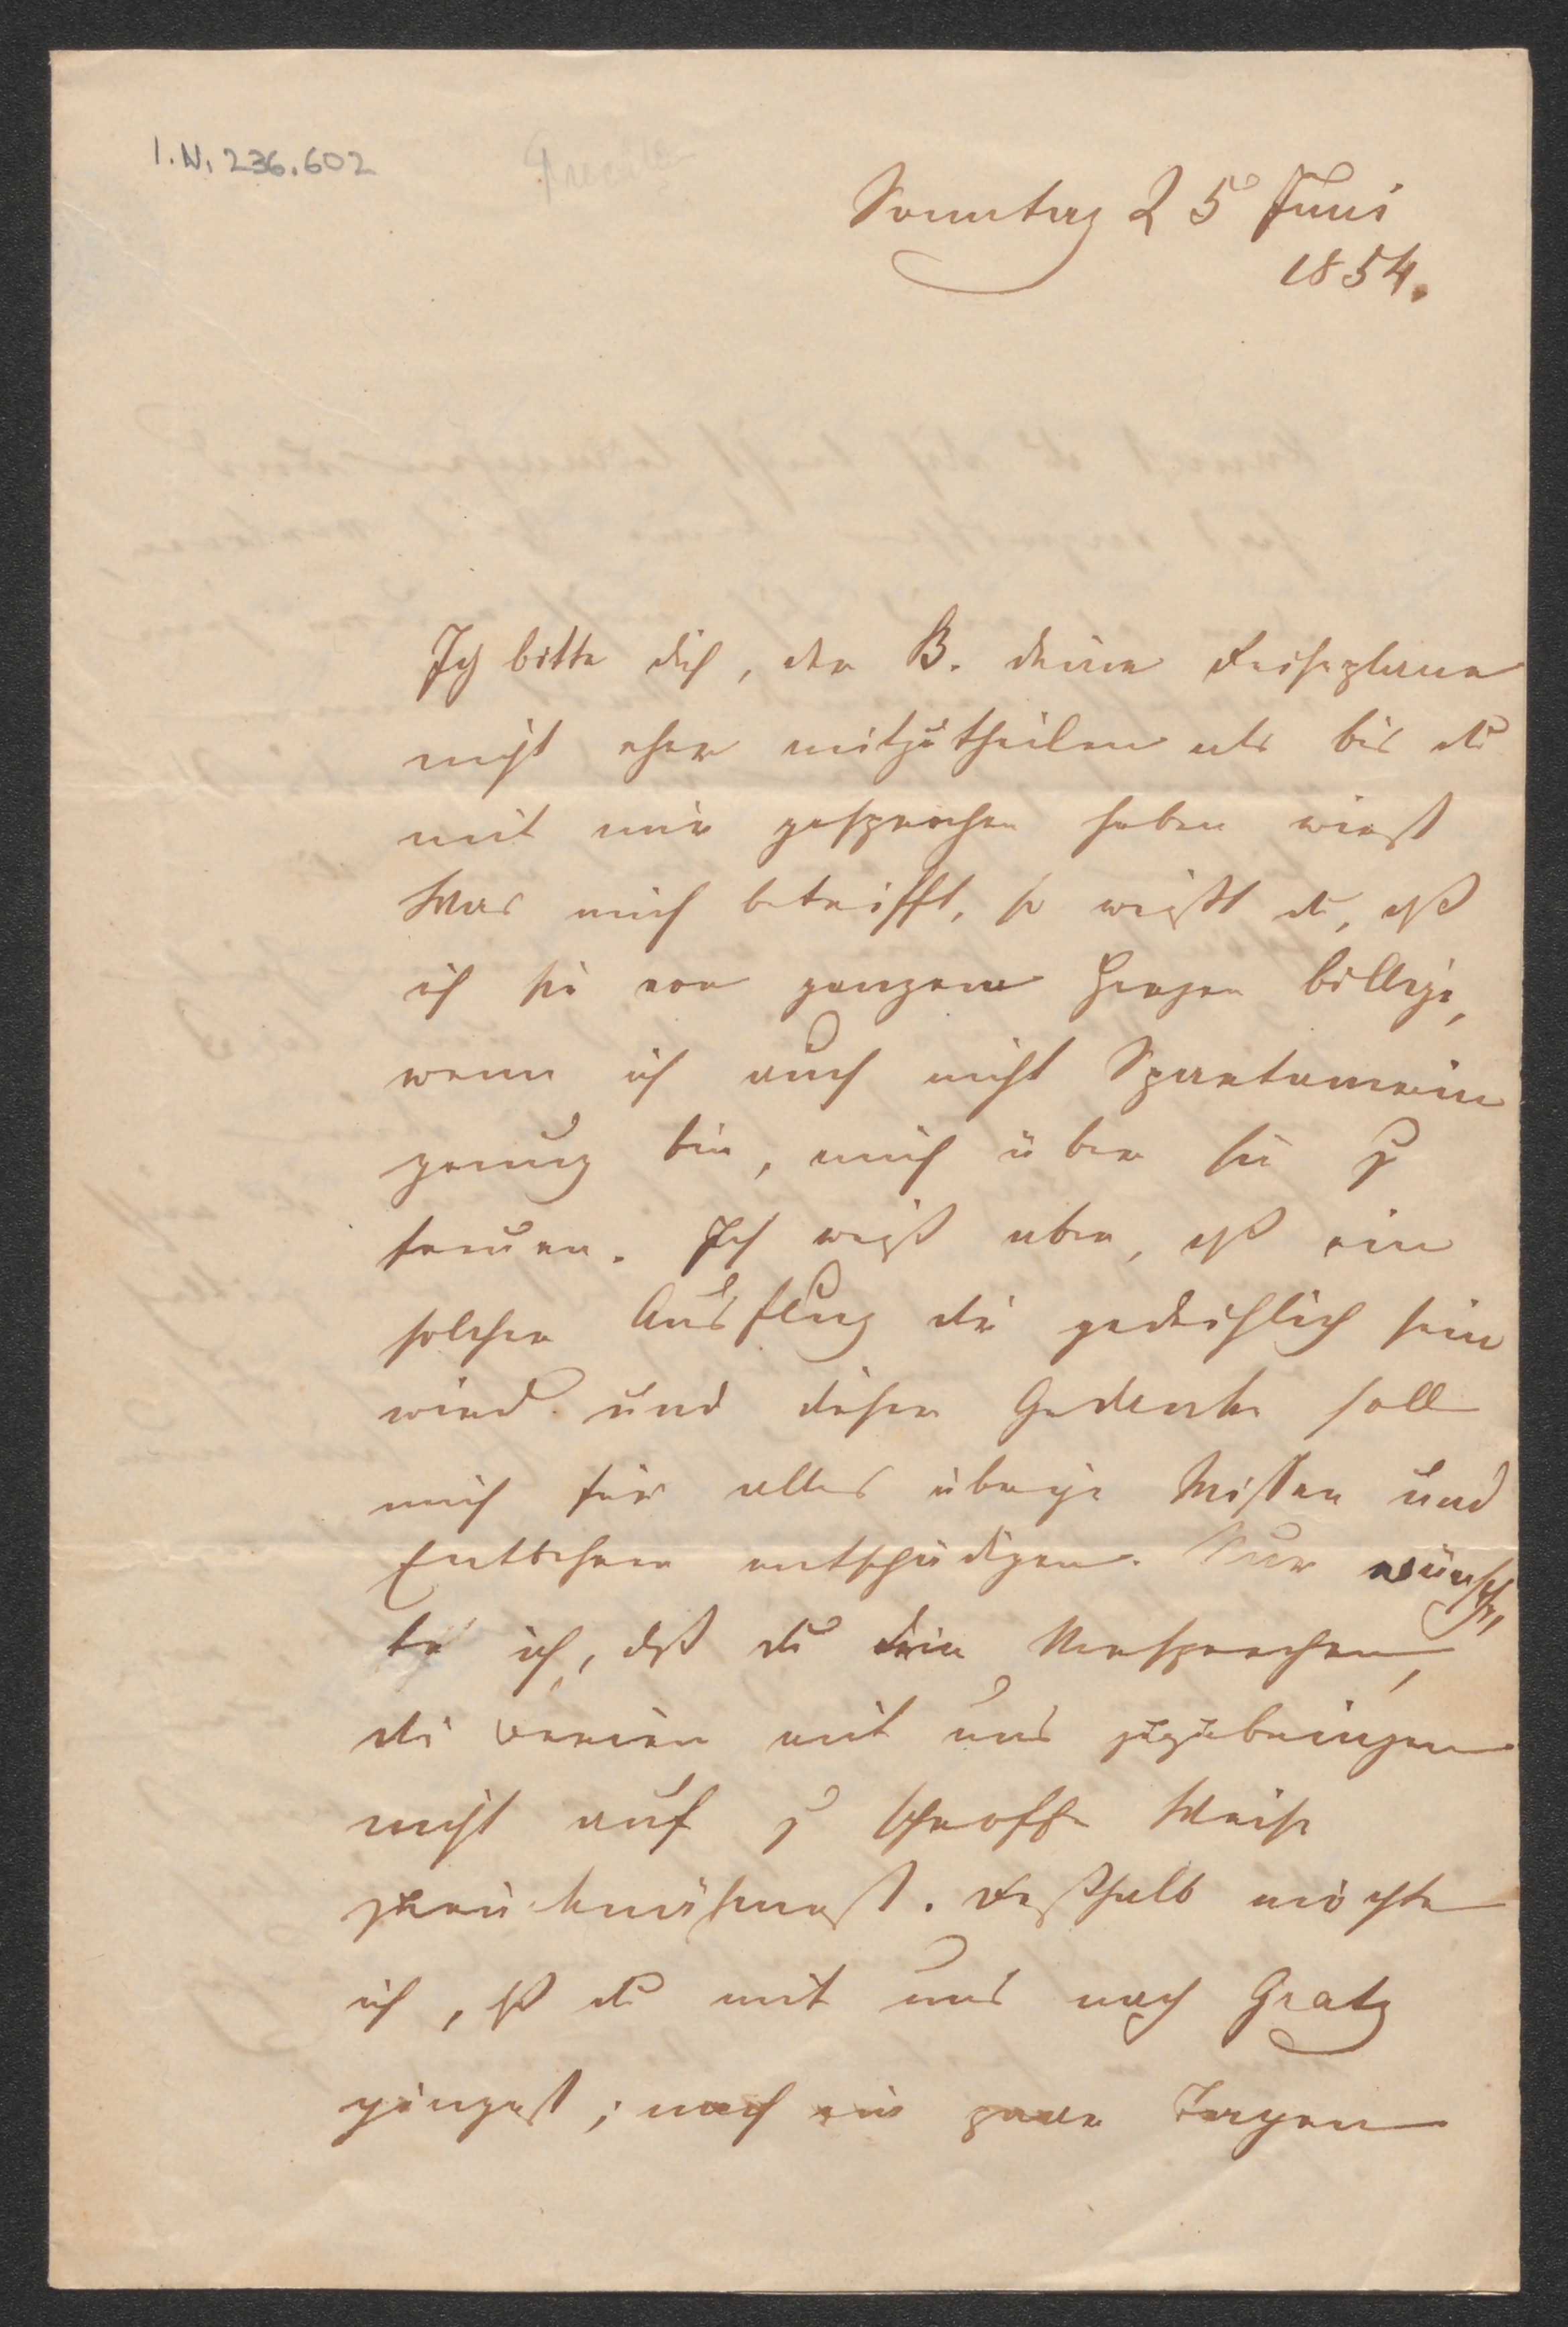 I.N. 236.602
Sonntag 25 Juni
1854.
Ich bitte dich, der B. deine Reiseplane
nicht eher mitzutheilen als bis du
mit mir gesprochen haben wirst
Was mich betrifft, so weißt du, daß
ich sie von ganzem Herzen billige,
wenn ich auch nicht Spartanerin
genug bin, mich über sie zu
freuen. Ich weiß aber, daß ein
solcher Ausflug dir gedeihlich sein
wird und dieser Gedanke soll
mich für alles übrige Missen und
Entbehren entschädigen. Nur wünsch,
te ich, daß du dein Versprechen,
die Ferien mit uns zuzubringen
nicht auf zu schroffe Weise
zurücknähmest. Deßhalb möchte
ich, daß du mit uns nach Gratz
giengest; nach ein paar Tagen